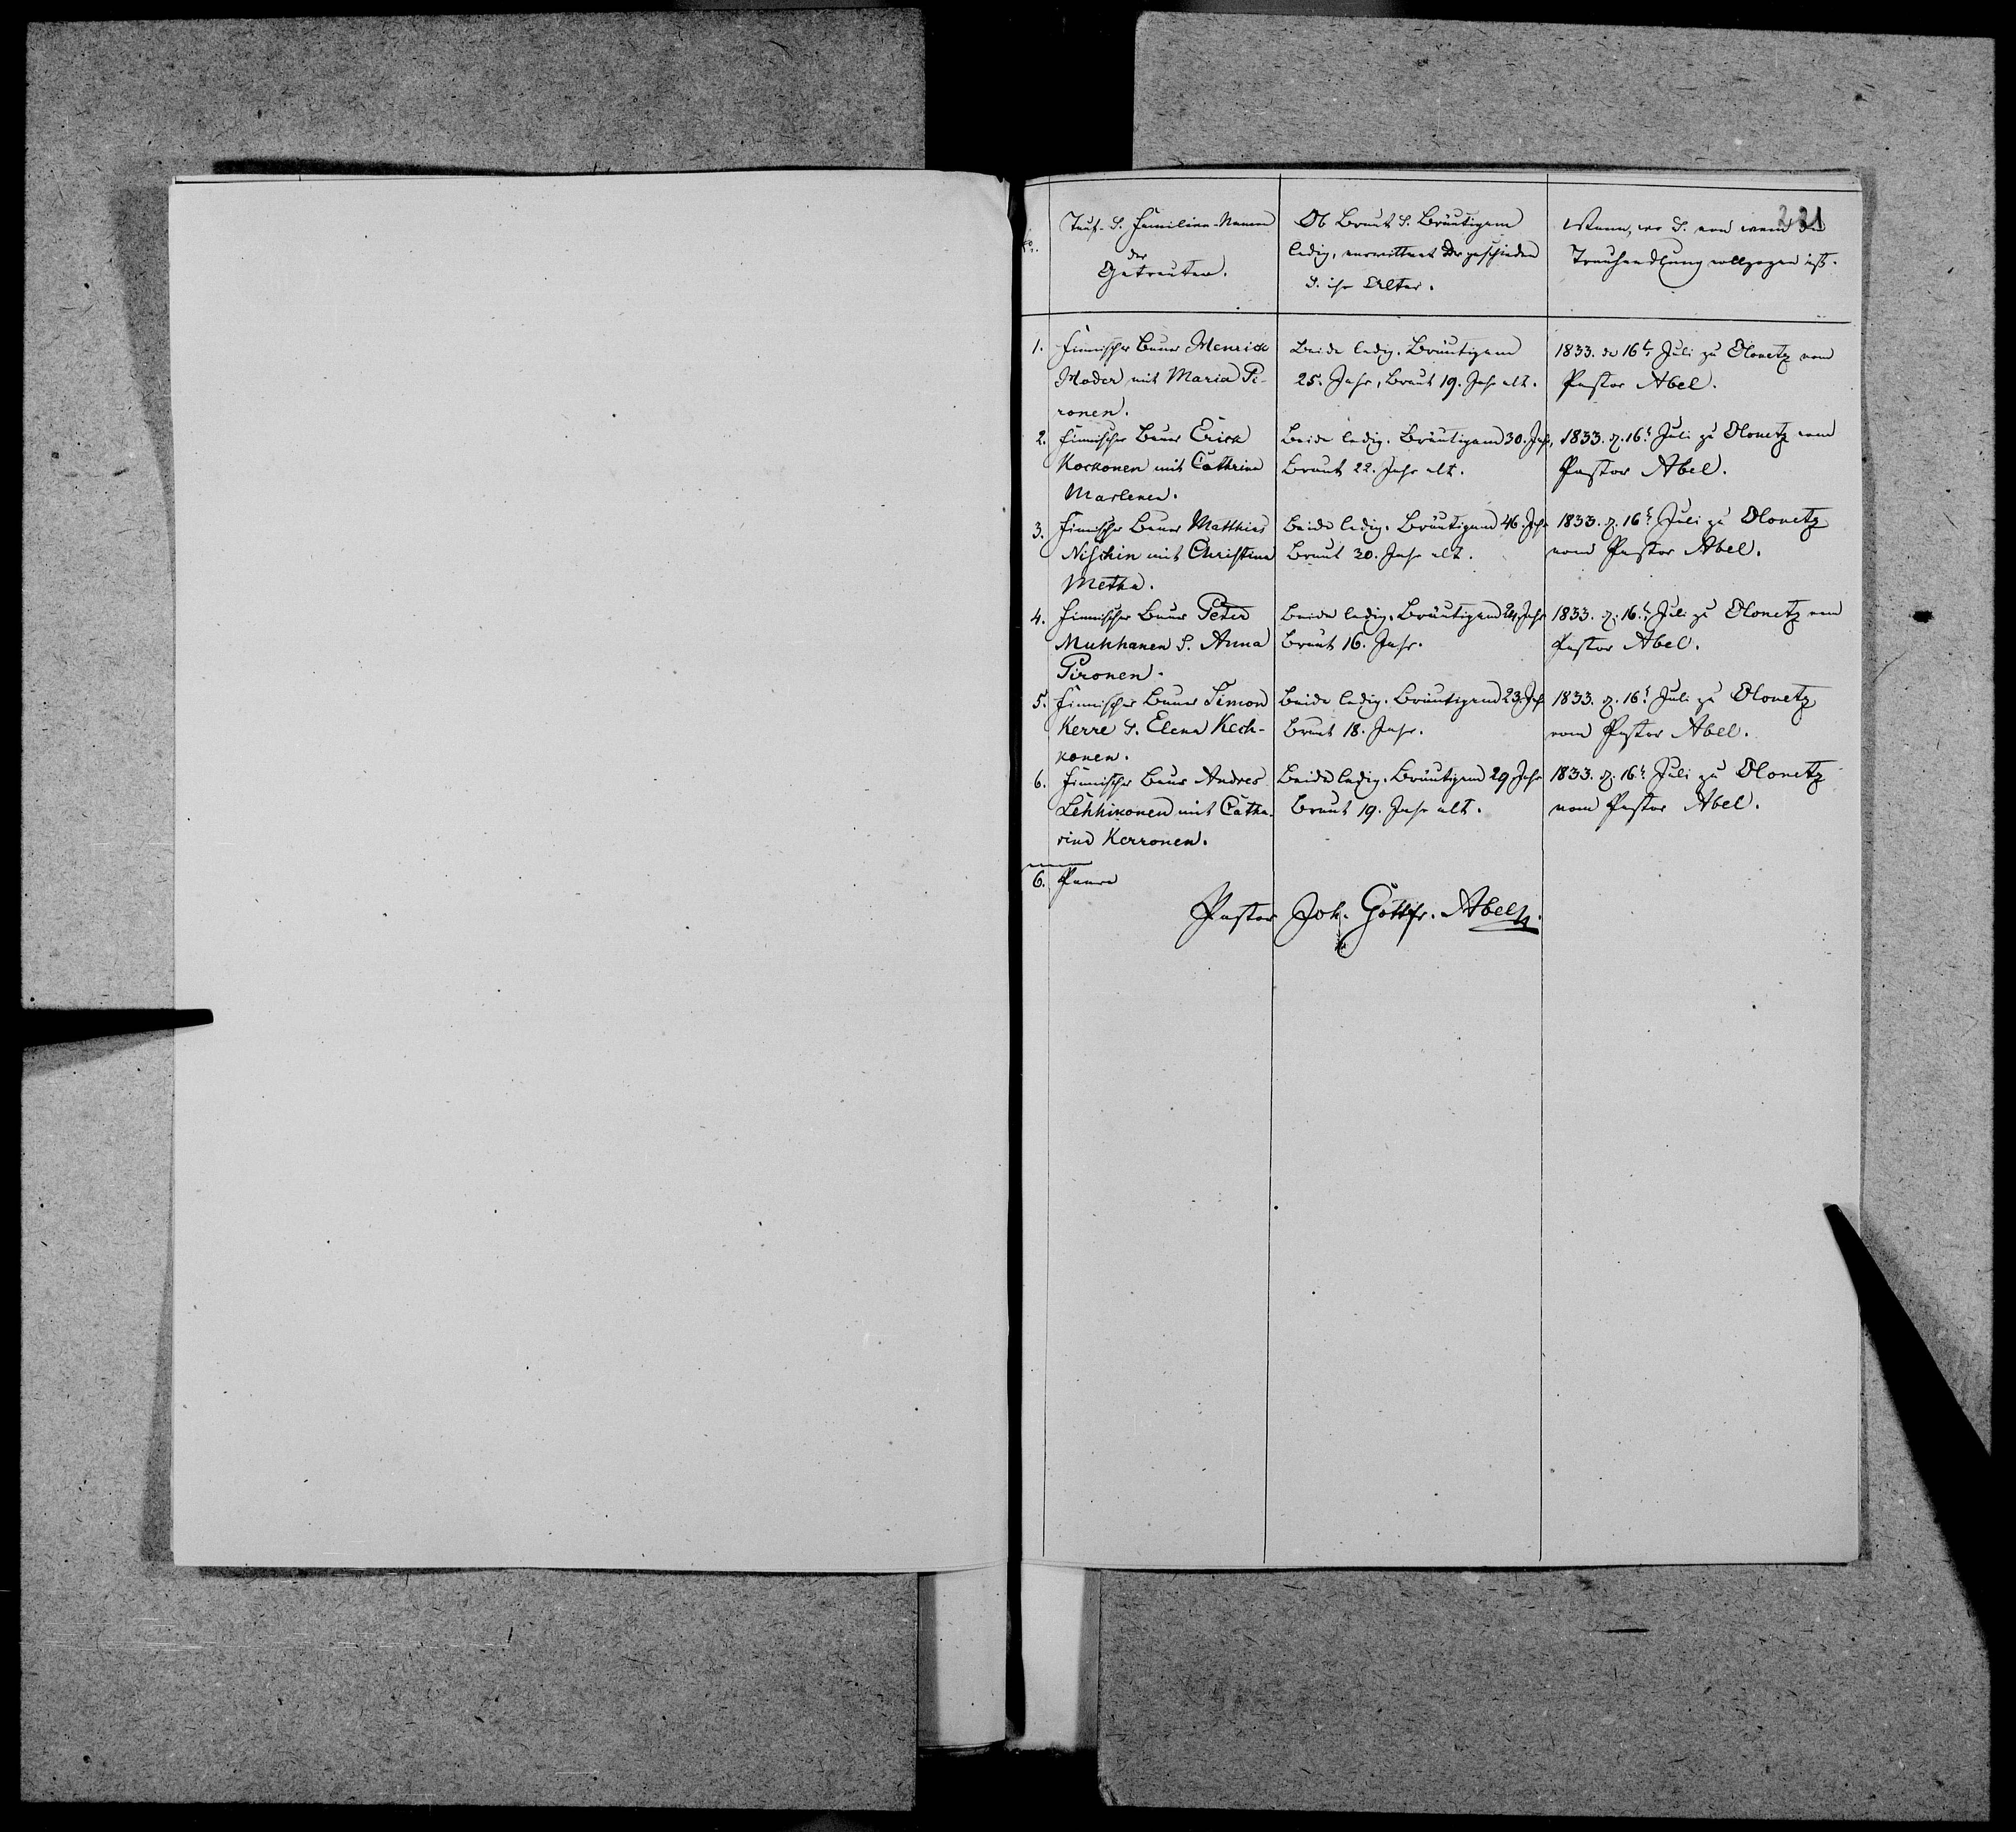 221
No.
Tauf- u. Familien-Namen
der
Getrauten.
Ob Braut u. Bräutigam
ledig, verwittwet oder geschieden
u. ihr Alter.
Wann, wo u. von wem die
Trauhandlung vollzogen ist.
1. Finnischer Bauer Henrick
Moder mit Maria Pi-
ronen.
Beide ledig. Bräutigam
25. Jahr, Braut 19. Jahr alt.
1833. d. 16t. Juli zu Olonetz vom
Pastor Abel.
2. Finnischer Bauer Erick
Kockonen mit Cathrina
Marlenen.
Beide ledig. Bräutigam 30. Jahr,
Braut 22. Jahr alt.
1833. d. 16t. Juli zu Olonetz vom
Pastor Abel.
3. Finnischer Bauer Matthias
Nischin mit Christina
Metka.
Beide ledig. Bräutigam 46. Jahr
Braut 30. Jahr alt.
1833. d. 16t. Juli zu Olonetz
vom Pastor Abel.
4. Finnischer Bauer Peter
Muhhanen u. Anna
Pironen.
Beide ledig. Bräutigam 24. Jahr
Braut 16. Jahr.
1833. d. 16t. Juli zu Olonetz vom
Pastor Abel.
5. Finnischer Bauer Simon
Kerre u. Elena Kech-
konen.
Beide ledig. Bräutigam 23. Jahr
Braut 18. Jahr.
1833. d. 16t. Juli zu Olonetz
vom Pastor Abel.
6. Finnischer Bauer Andres
Lehhikonen mit Catha-
rina Kerronen.
Beide ledig. Bräutigam 29 Jahr
Braut 19. Jahr alt.
1833. d. 16t. Juli zu Olonetz
vom Pastor Abel.
6. Paare
Pastor Joh. Gottfr. Abel.